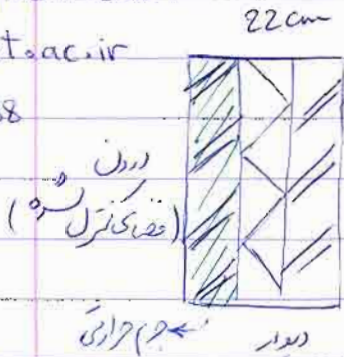 22 cm
t.ac.ir
8
درون
(فضای کنترل شده)
جرم حرارتی
دیوار